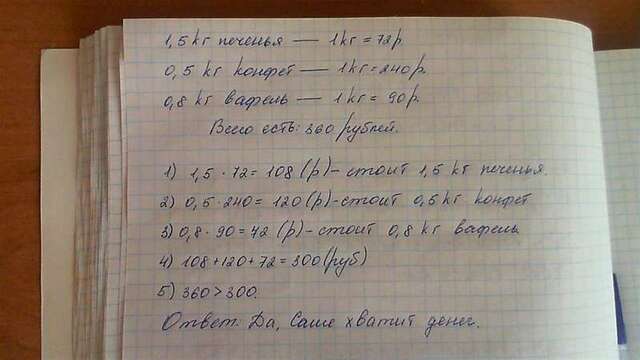 1,5 кг печенья — 1 кг = 72 р.
0,5 кг конфет — 1 кг = 240 р.
0,8 кг вафель — 1 кг = 90 р.
Всего есть: 360 рублей.
1) 1,5 · 72 = 108 (р) - стоит 1,5 кг печенья.
2) 0,5 · 240 = 120 (р) - стоит 0,5 кг конфет
3) 0,8 · 90 = 72 (р) - стоит 0,8 кг вафель
4) 108 + 120 + 72 = 300 (руб)
5) 360 > 300.
Ответ: Да, Саше хватит денег.